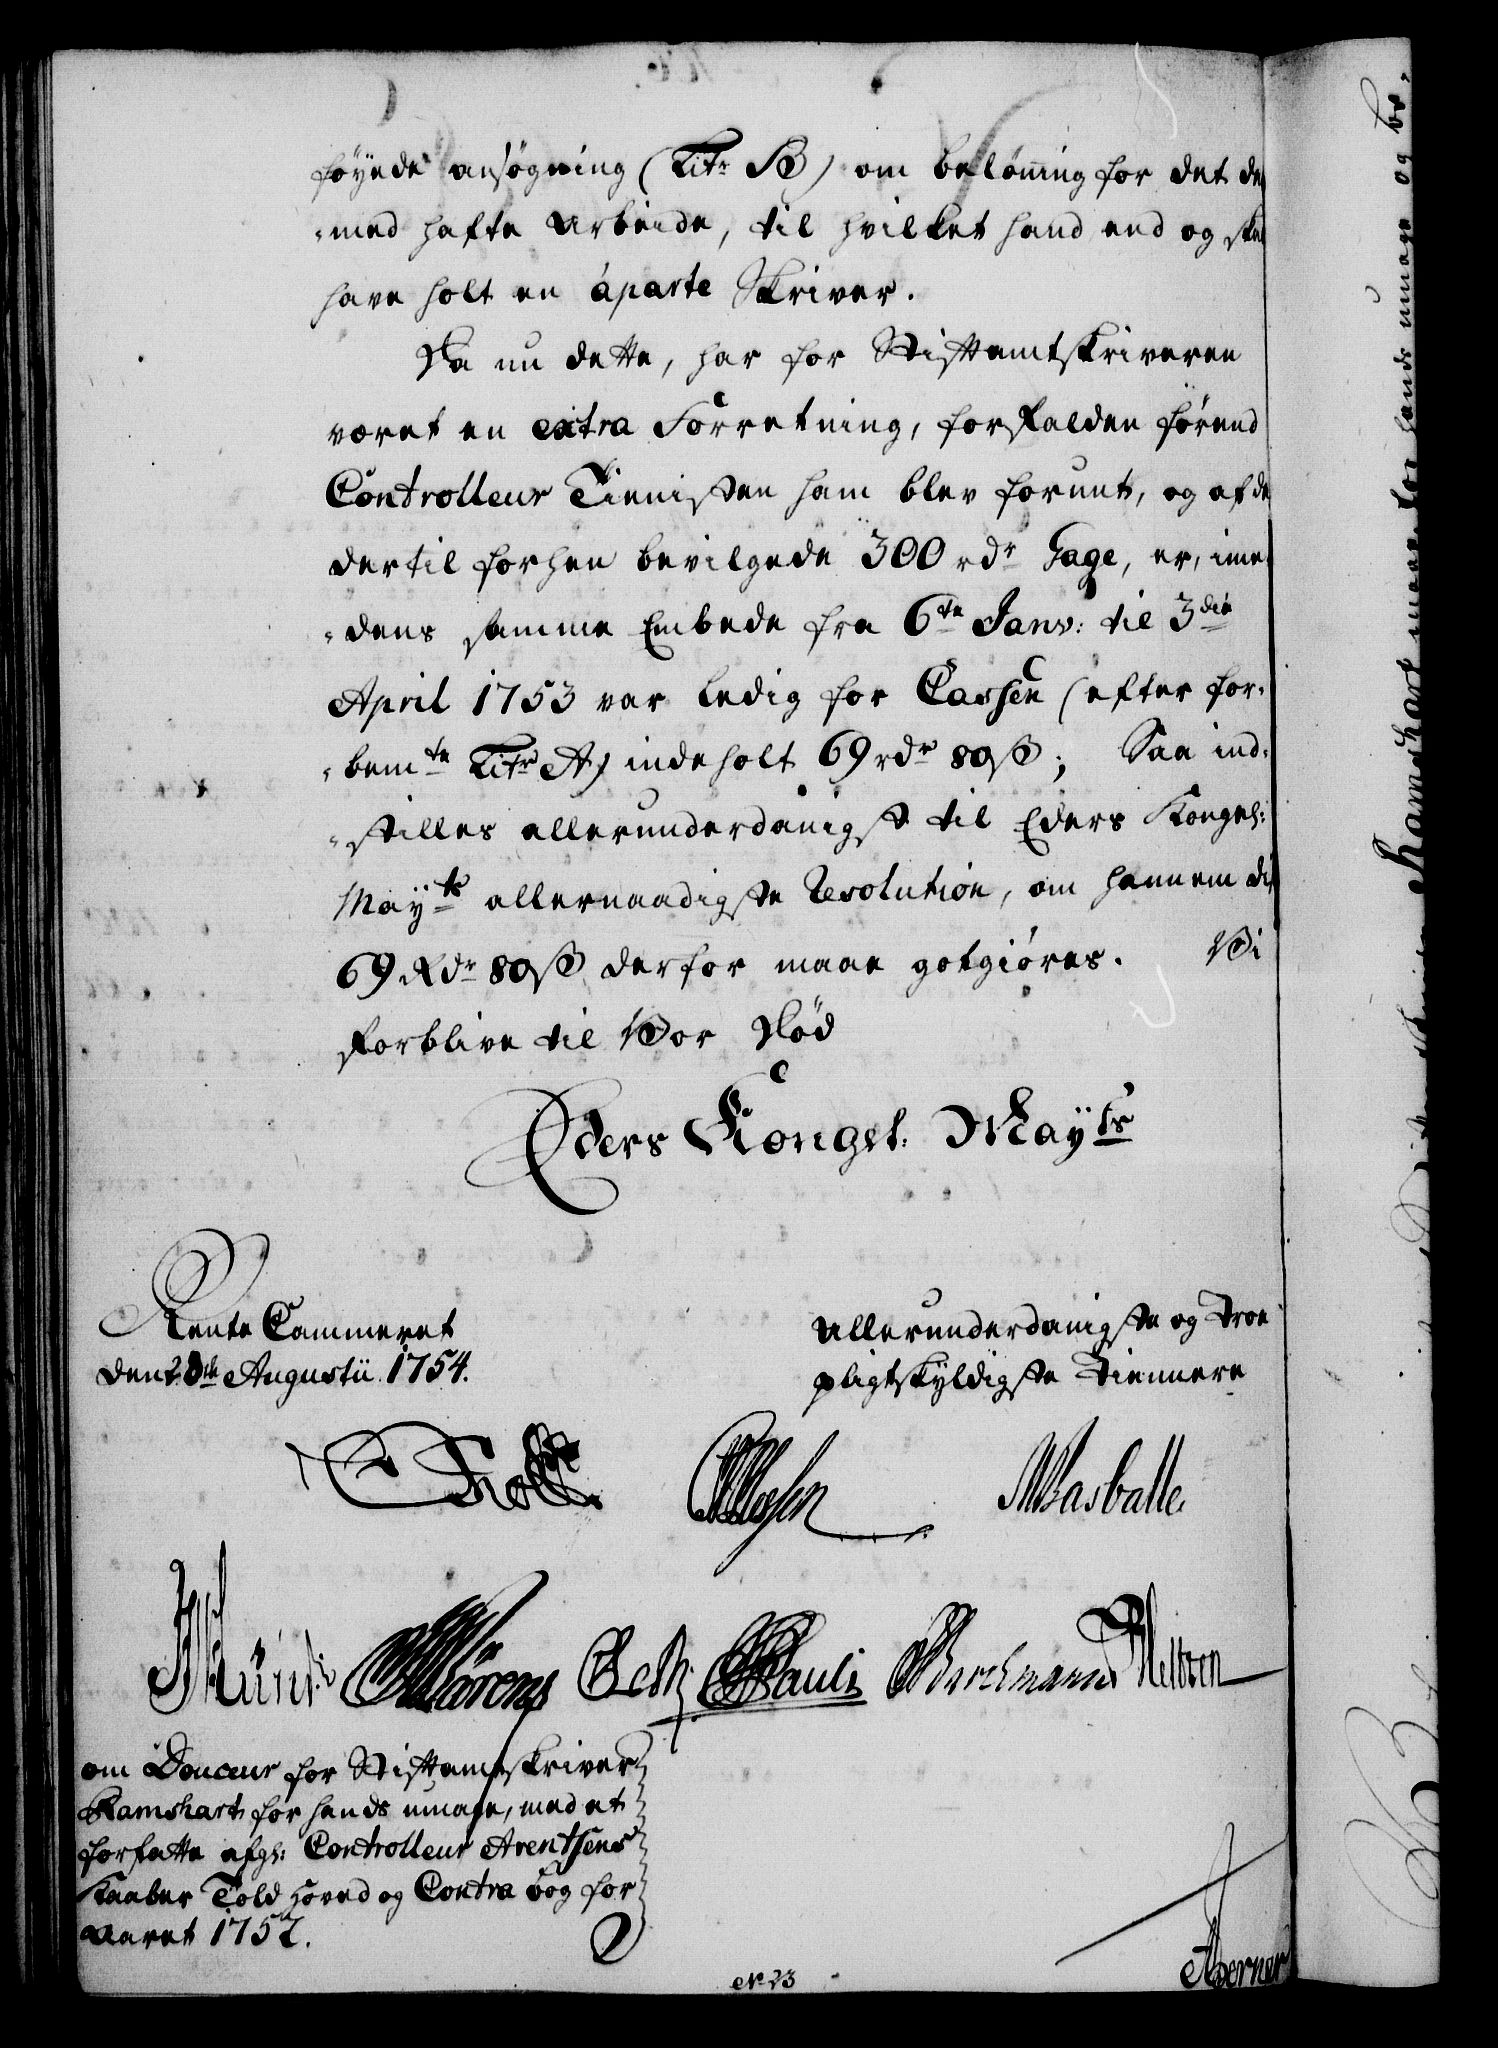 føyede ansøgning (Litr B) om belønning for det der
-med hafte Arbeide, til hvilket hand end og skal
have holt en áparte Skriver.
Da nu dette, har for Stiftamtskriveren
været en extra Forretning, forfalden førend
Controlleur Tienisten ham blev forunt, og af de
dertil forhen bevilgede 300 rdr Gage, er, ime-
-dens samme Embede fra 6te Janv: til 3die
April 1753 var ledig for Cassen (efter for-
-bemte Litr A) indeholt 69 rdr 80 ß; Saa ind-
-stilles allerunderdanigst til Eders Kongel:
Mayts allernaadigste Resolution, om hannem di
69 Rdr 80 ß derfor maae gotgiøres. Vi
forblive til Vor Død
Eders Kongel. Mayts
Rente Cammeret
den 28de Augustii 1754.
Allerunderdanigste og Troe
pligtskyldigste Tiennere
Holst.
Wasballe.
Pauli
om Douceur for Stiftamtskriver
Ramshart for hands umage, med at
forfatte afg: Controlleur Arentsens
Kaaber Told Hoved og Contra bog for
Aaret 1752.
No 23